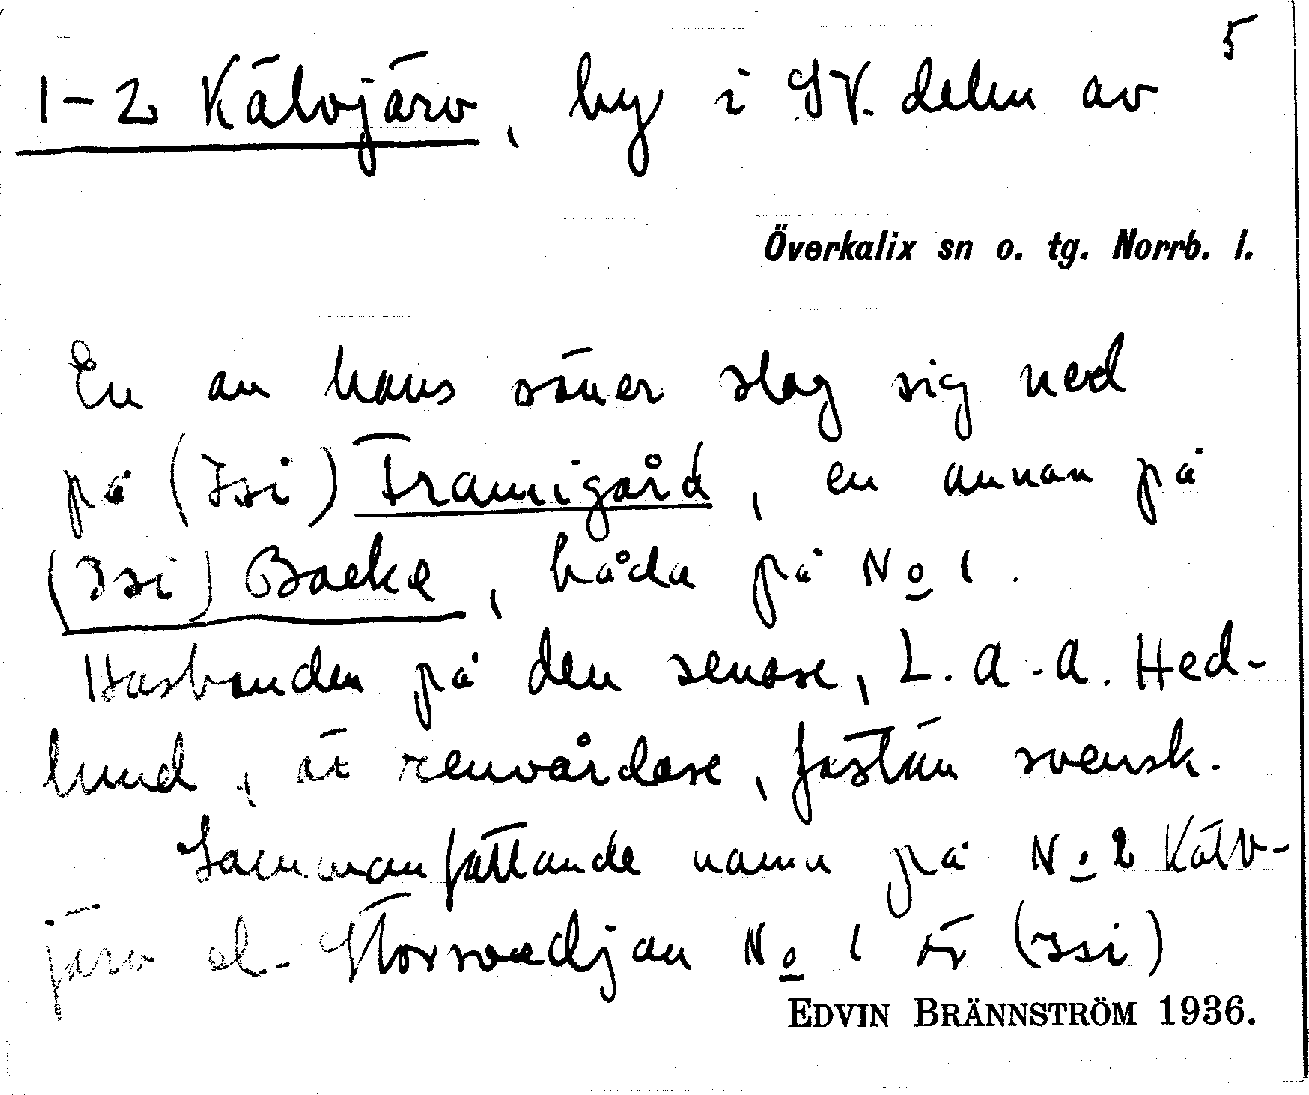 5
1-2 Kälvjärv, by i SV. delen av
Överkalix sn o. tg. Norrb. l.
En av hans söner slog sig ned
på (Isi) Framigård, en annan på
(Isi) Backe, båda på No 1.
Husbonden på den senare, L. A. A. Hed-
lund, är renvårdare, fastän svensk.
Sammanfattande namn på No 2 Kälv-
järv el. Storsvedjan No 1 är (Isi)
EDVIN BRÄNNSTRÖM 1936.